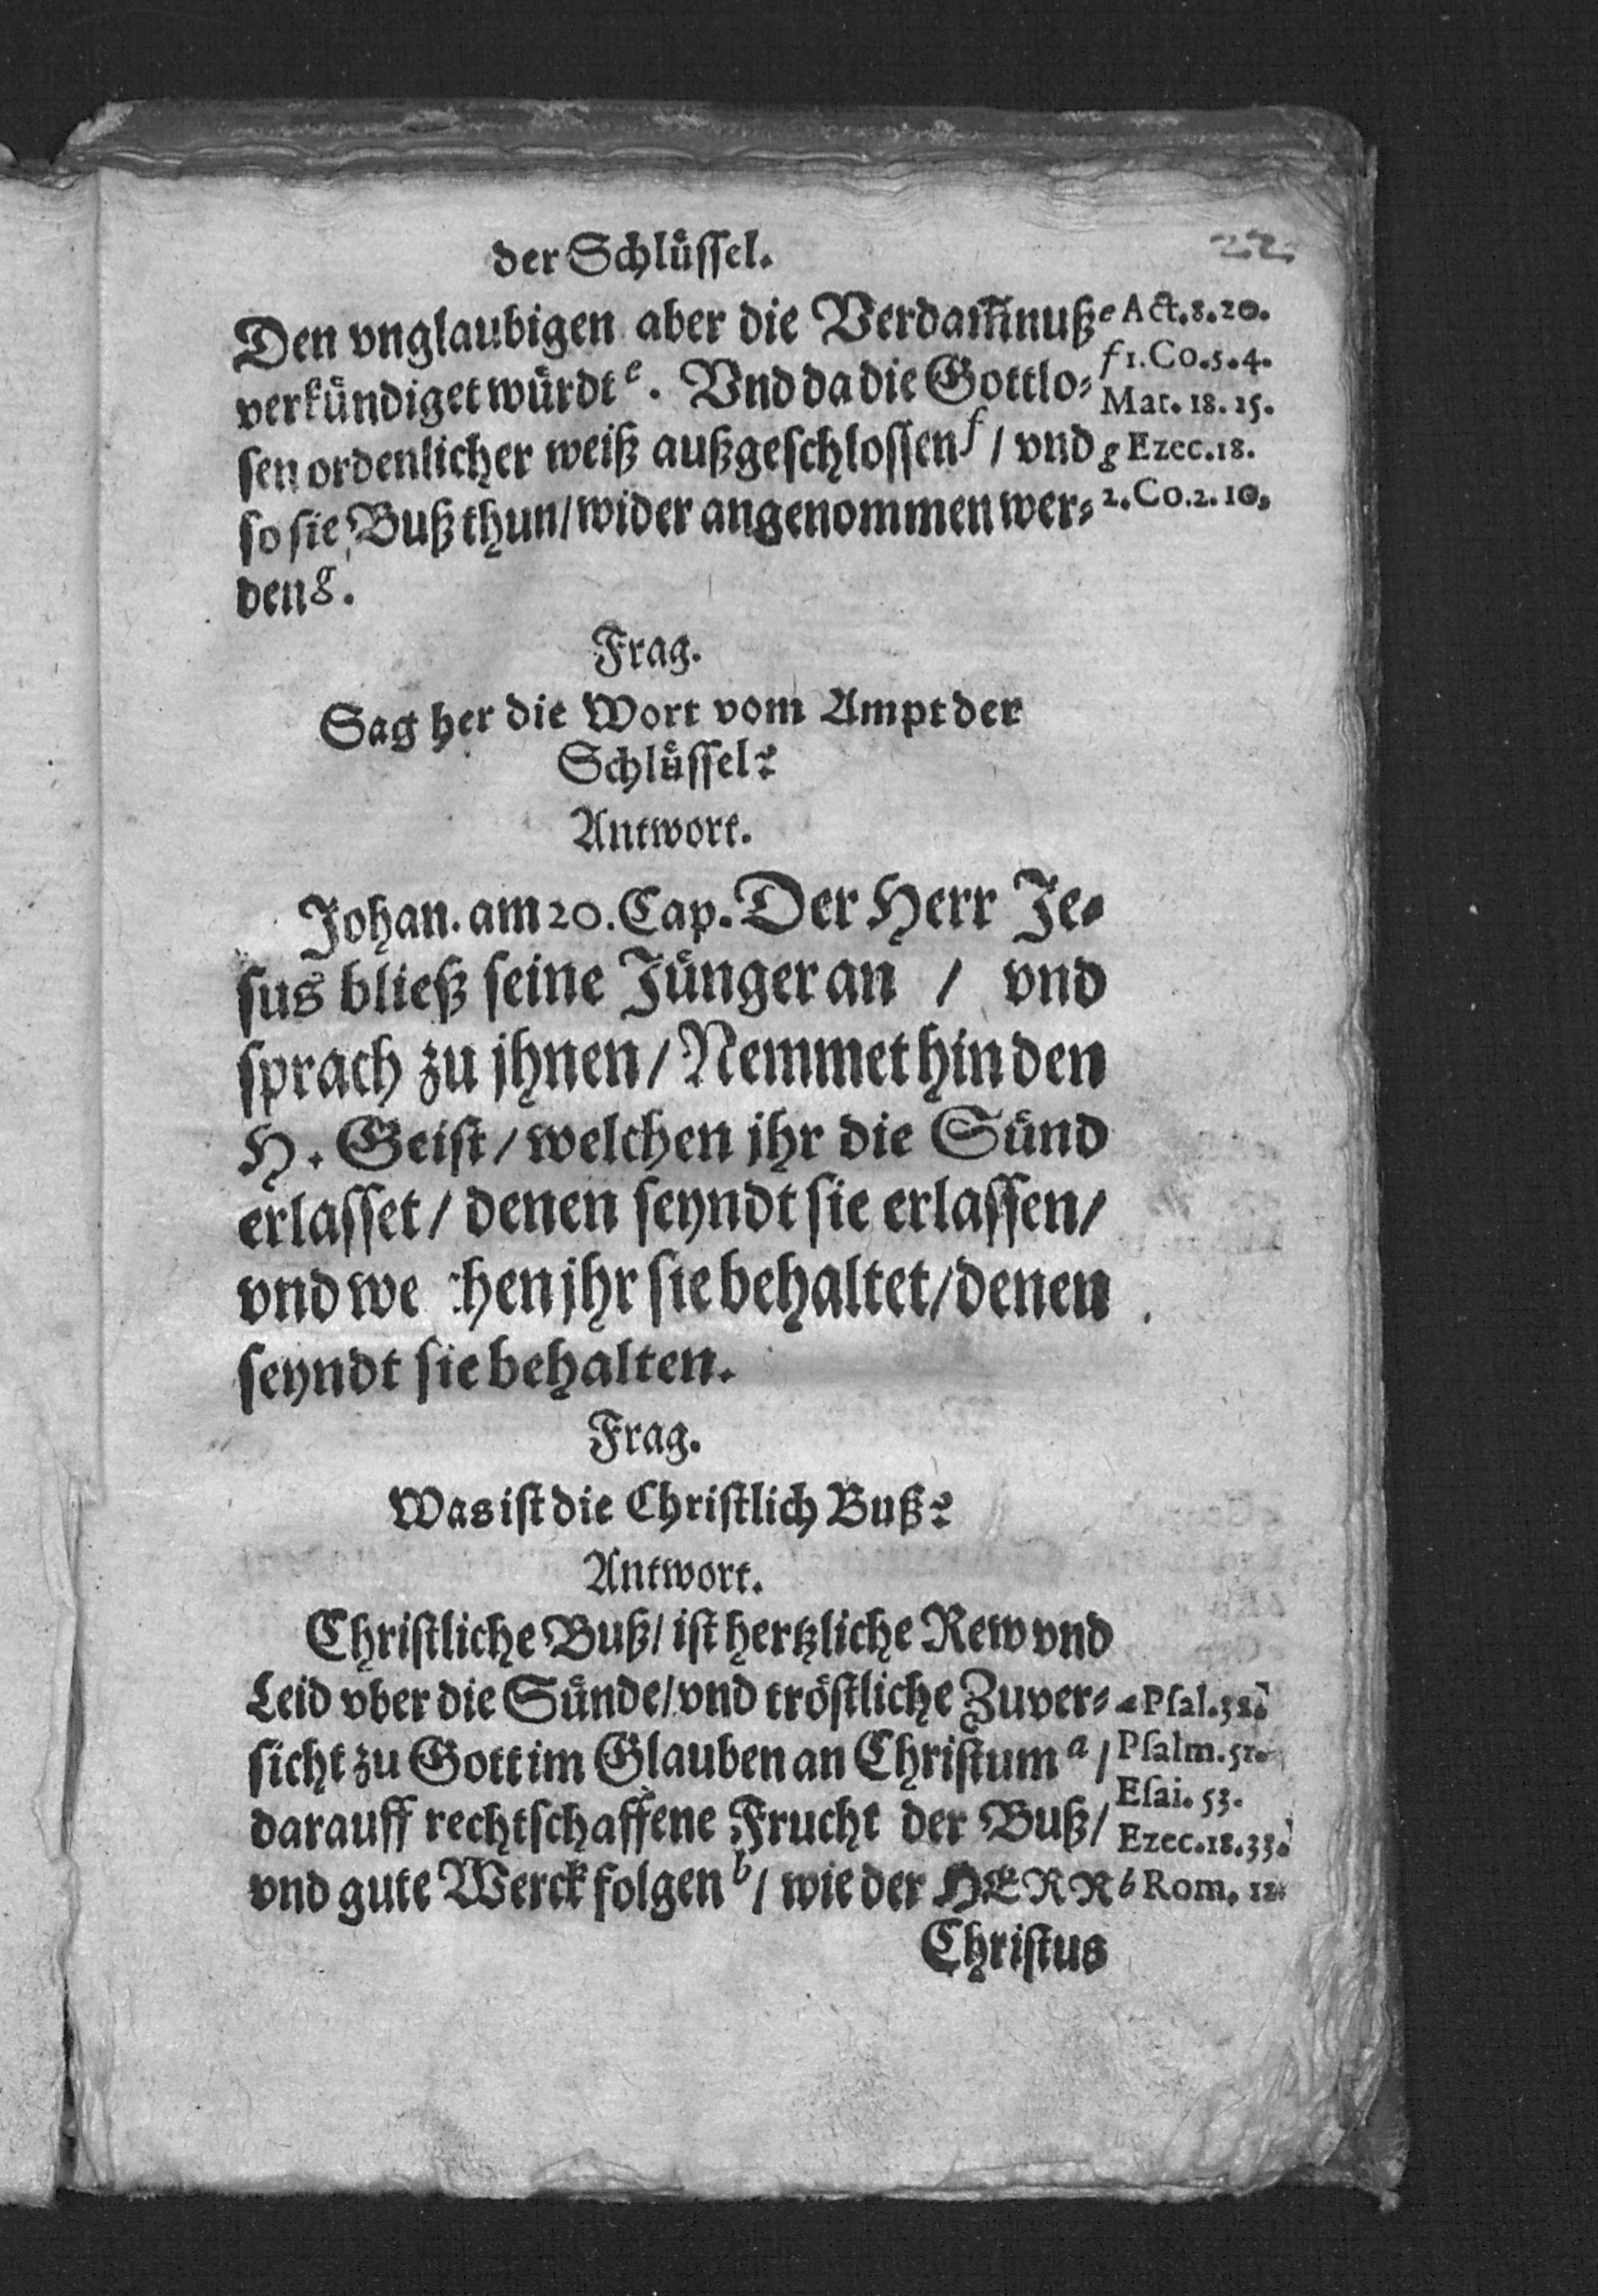 der Schlüssel.
22
Den vnglaubigen aber die Verdam̃nuß
verkündiget würdt e. Vnd da die Gottlo-
sen ordenlicher weiß außgeschlossen f / vnd
so sie Buß thun / wider angenommen wer-
den g.
e Act. 8. 20.
f 1. Co. 5. 4.
Mat. 18. 15.
g Ezec. 18.
2. Co. 2. 10.
Frag.
Sag her die Wort vom Ampt der
Schlüssel?
Antwort.
Johan. am 20. Cap. Der Herr Je-
sus bließ seine Jünger an / vnd
sprach zu jhnen / Nemmet hin den
H. Geist / welchen jhr die Sünd
erlasset / denen seyndt sie erlassen /
vnd we chen jhr sie behaltet / denen
seyndt sie behalten.
Frag.
Was ist die Christlich Buß?
Antwort.
Christliche Buß / ist hertzliche Rew vnd
Leid vber die Sünde / vnd tröstliche Zuver-
sicht zu Gott im Glauben an Christum a /
darauff rechtschaffene Frucht der Buß /
vnd gute Werck folgen b / wie der HERR
a Psal. 32.
Psalm. 51.
Esai. 53.
Ezec. 18. 33.
b Rom. 12.
Christus